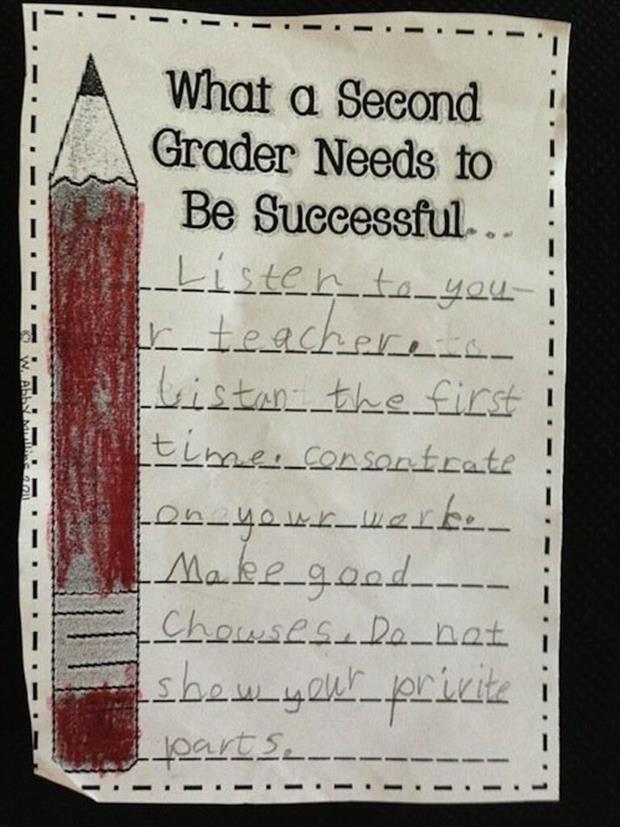 What a Second
Grader Needs to
Be Successful...
Listen to you-
r teacher. to
Listan the first
time. consontrate
on your work.
Make good
Chowses. Do not
show your privite
parts.